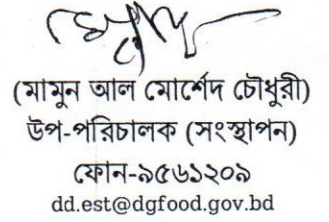 (মামুন আল মোর্শেদ চৌধুরী)
উপ-পরিচালক (সংস্থাপন)
ফোন-৯৫৬১২০৯
dd.est@dgfood.gov.bd